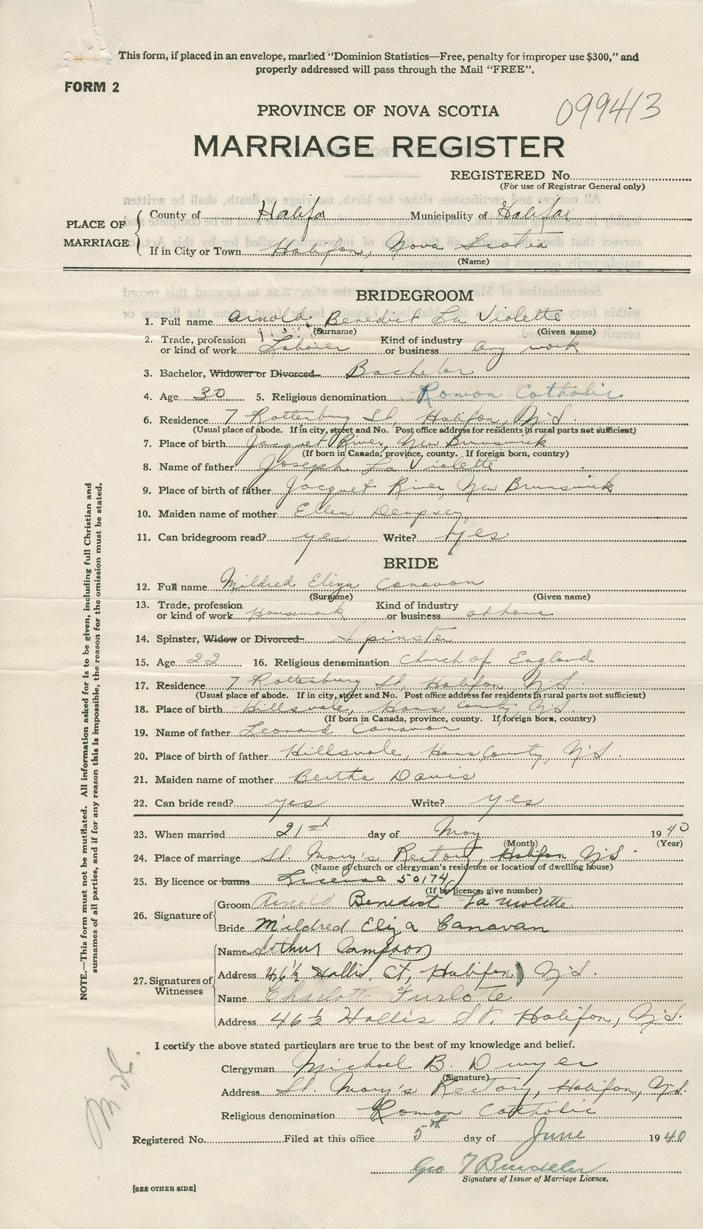 This form, if placed in an envelope, marked "Dominion Statistics—Free, penalty for improper use $300," and
properly addressed will pass through the Mail "FREE".
FORM 2
099413
PROVINCE OF NOVA SCOTIA
MARRIAGE REGISTER
REGISTERED No.
(For use of Registrar General only)
PLACE OF MARRIAGE
County of Halifax Municipality of Halifax
If in City or Town Halifax, Nova Scotia
(Name)
BRIDEGROOM
1. Full name Arnold Benedict La Violette
(Surname) (Given name)
2. Trade, profession or kind of work Laborer Kind of industry or business any work
3. Bachelor, Widower or Divorced Bachelor
4. Age 30 5. Religious denomination Roman Catholic
6. Residence 7 Rottenburg St, Halifax, N.S.
(Usual place of abode. If in city, street and No. Post office address for residents in rural parts not sufficient)
7. Place of birth Jacquet River, New Brunswick
(If born in Canada, province, county. If foreign born, country)
8. Name of father Joseph La Violette
9. Place of birth of father Jacquet River, New Brunswick
10. Maiden name of mother Ellen Dempsey
11. Can bridegroom read? yes Write? yes
BRIDE
12. Full name Mildred Eliza Canavan
(Surname) (Given name)
13. Trade, profession or kind of work Housework Kind of industry or business at home
14. Spinster, Widow or Divorced Spinster
15. Age 22 16. Religious denomination Church of England
17. Residence 7 Rottenburg St, Halifax, N.S.
(Usual place of abode. If in city, street and No. Post office address for residents in rural parts not sufficient)
18. Place of birth Hillsvale, Hans County, N.S.
(If born in Canada, province, county. If foreign born, country)
19. Name of father Leonard Canavan
20. Place of birth of father Hillsvale, Hans County, N.S.
21. Maiden name of mother Bertha Davis
22. Can bride read? yes Write? yes
23. When married 21st day of May 1940
(Month) (Year)
24. Place of marriage St. Mary's Rectory, Halifax, N.S.
(Name of church or clergyman's residence or location of dwelling house)
25. By licence or banns License 50174
(If by licence, give number)
26. Signature of
Groom Arnold Benedict La Violette
Bride Mildred Eliza Canavan
27. Signatures of Witnesses
Name Arthur
Address 46½ Hollis St, Halifax, N.S.
Name Charlott Furlotte
Address 46½ Hollis St. Halifax, N.S.
I certify the above stated particulars are true to the best of my knowledge and belief.
Clergyman Michael B. Dwyer
(Signature)
Address St. Mary's Rectory, Halifax, N.S.
Religious denomination Roman Catholic
Registered No. Filed at this office 5th day of June 1940
Geo
Signature of Issuer of Marriage Licence.
[SEE OTHER SIDE]
NOTE.—This form must not be mutilated. All information asked for is to be given, including full Christian and
surnames of all parties, and if for any reason this is impossible, the reason for the omission must be stated.